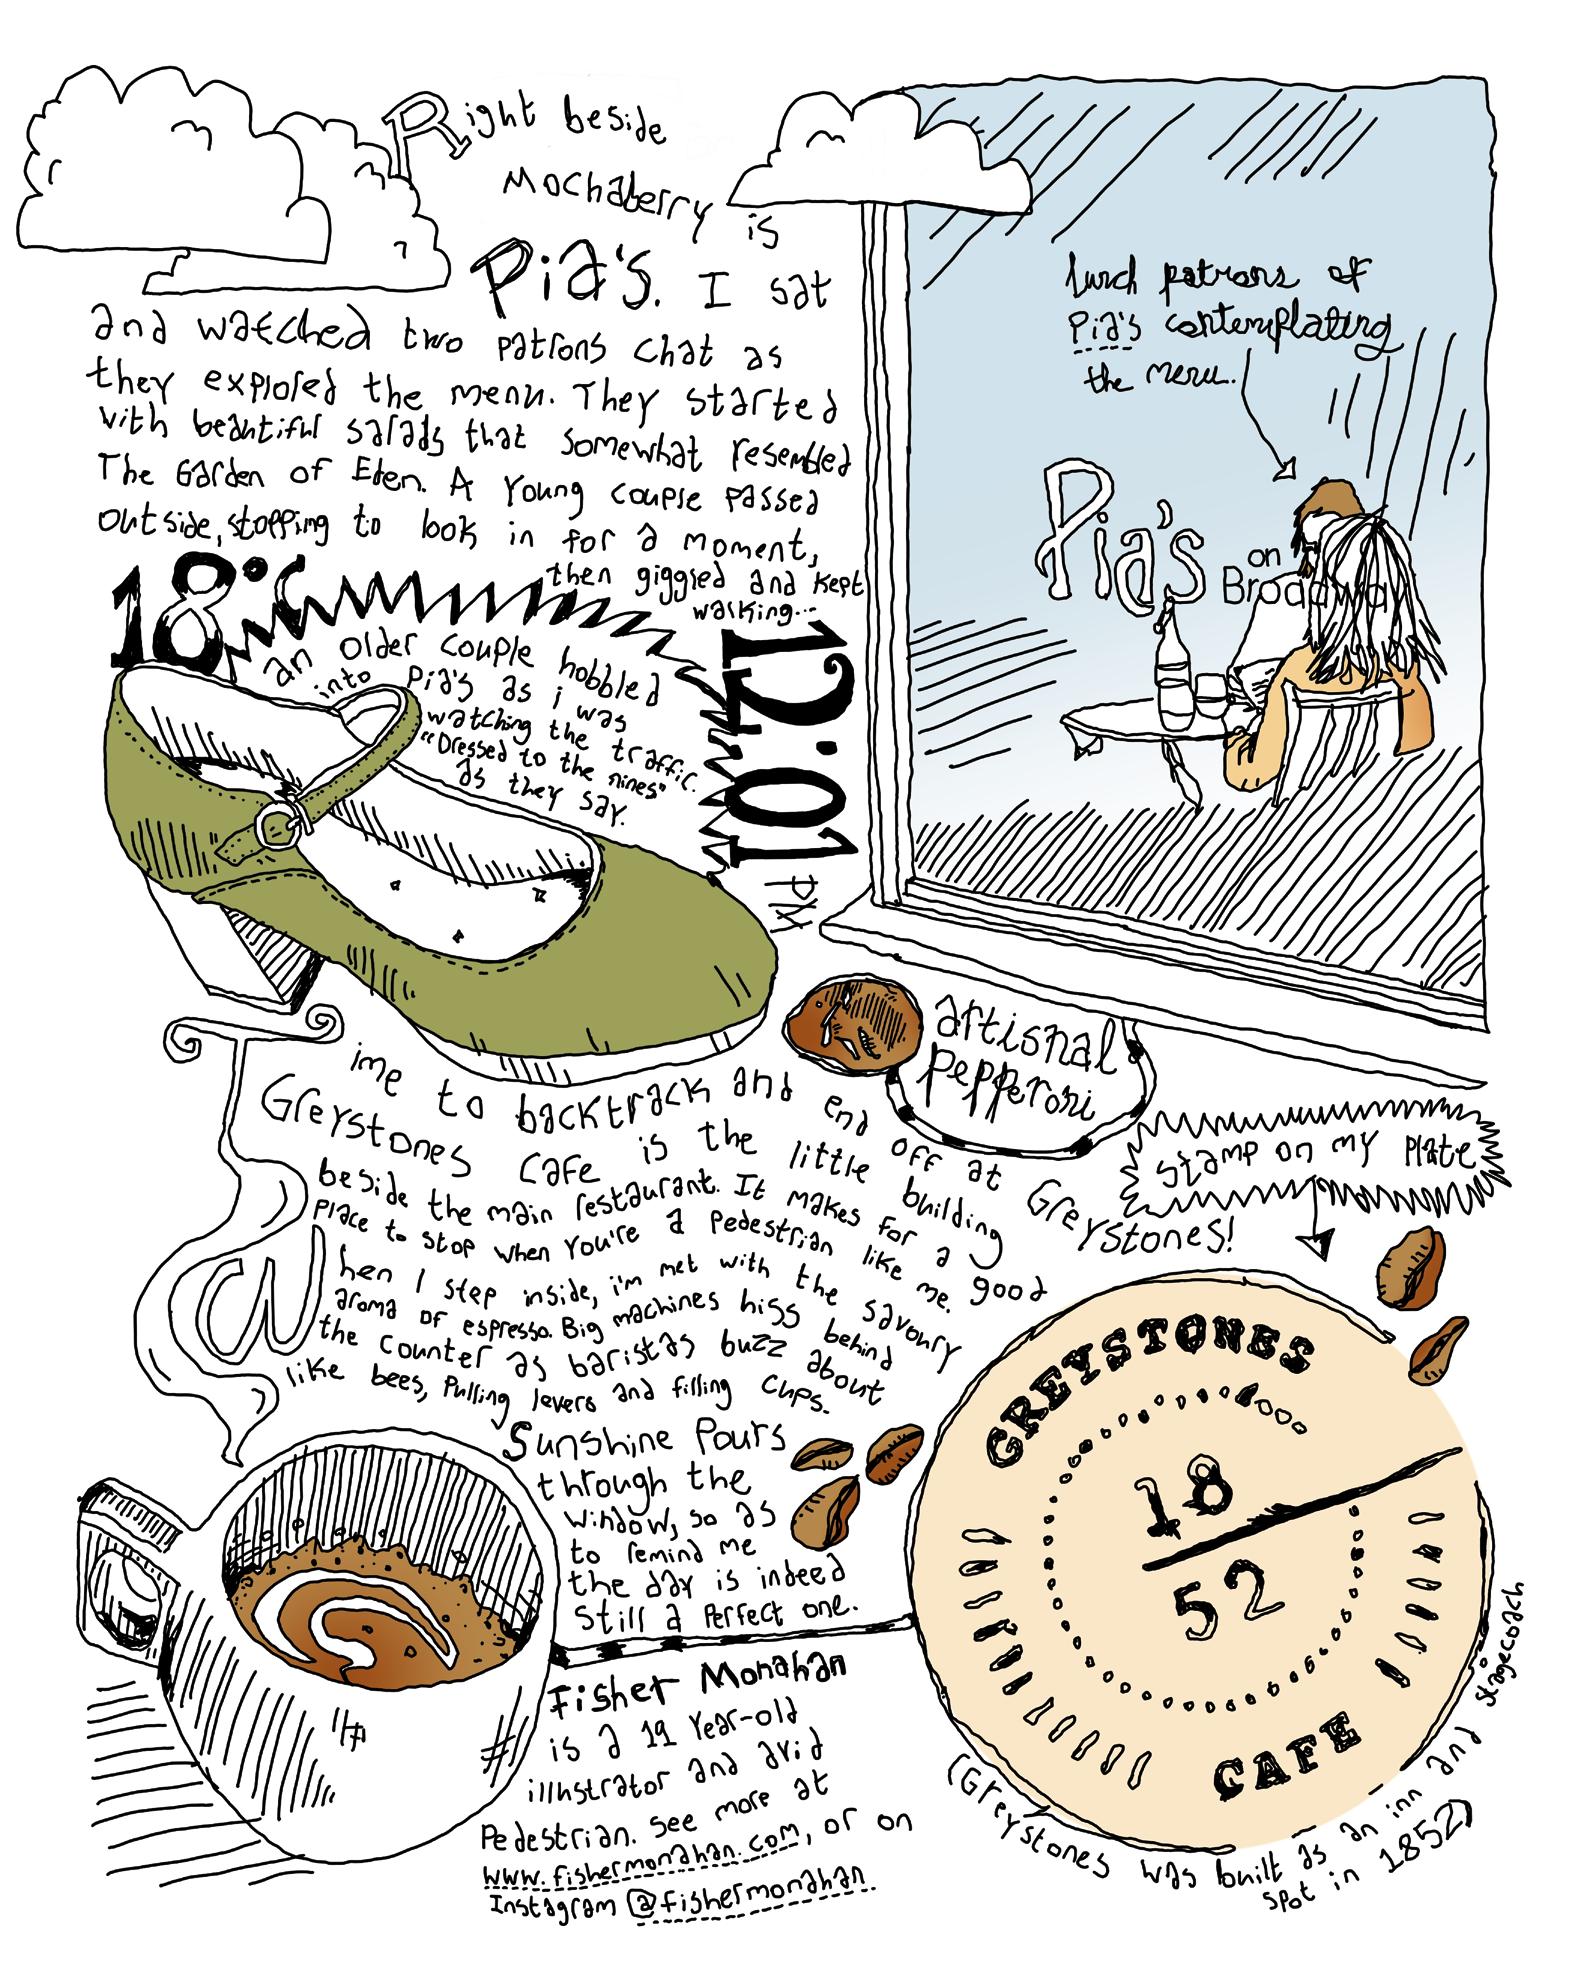 Right beside
Mochaberry is
Pia's. I sat
and watched two patrons chat as
they explored the menu. They started
with beautiful salads that somewhat resembled
The Garden of Eden. A Young couple passed
outside, stopping to look in for a moment,
then giggled and kept
walking...
lunch patrons of
Pia's contemplating
the menu.
Pia's on
Broadway
18°C
12:01 PM
an older couple hobbled
into Pia's as i was
watching the traffic.
"Dressed to the nines"
as they say.
artisnal
pepperoni
ime to backtrack and end off at Greystones!
Greystones Cafe is the little building
beside the main restaurant. It makes for a good
place to stop when You're a pedestrian like me.
When I step inside, i'm met with the savoury
aroma of espresso. Big machines hiss behind
the counter as baristas buzz about
like bees, pulling levers and filling cups.
Sunshine Pours
through the
window, so as
to remind me
the day is indeed
still a perfect one.
stamp on my plate
GREYSTONES
18
52
CAFE
(Greystones was built as an inn and stagecoach
spot in 1852)
Fisher Monahan
is a 19 Year-old
illustrator and avid
Pedestrian. See more at
www.fishermonahan.com, or on
Instagram @fishermonahan.